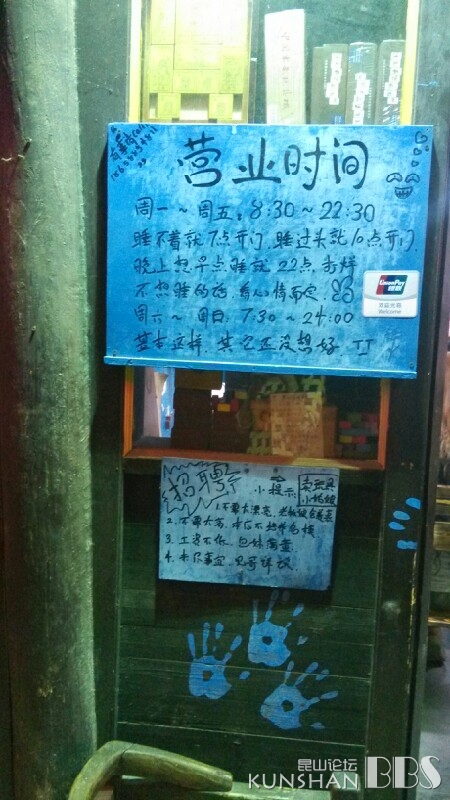 营业时间
周一~周五：8:30~22:30
睡不着就7点开门，睡过头就10点开门
晚上想早点睡就22点打烊
不想睡的话，看心情而定
周六~周日：7:30~24:00
基本这样，其它还没想好
UnionPay
银联
Welcome
招聘
小提示
卖玩具
小姑娘
1.不要太漂亮，
2.不要太高，
3.工资不低，
4.未尽事宜，见哥详议
昆山论坛
KUNSHAN BBS